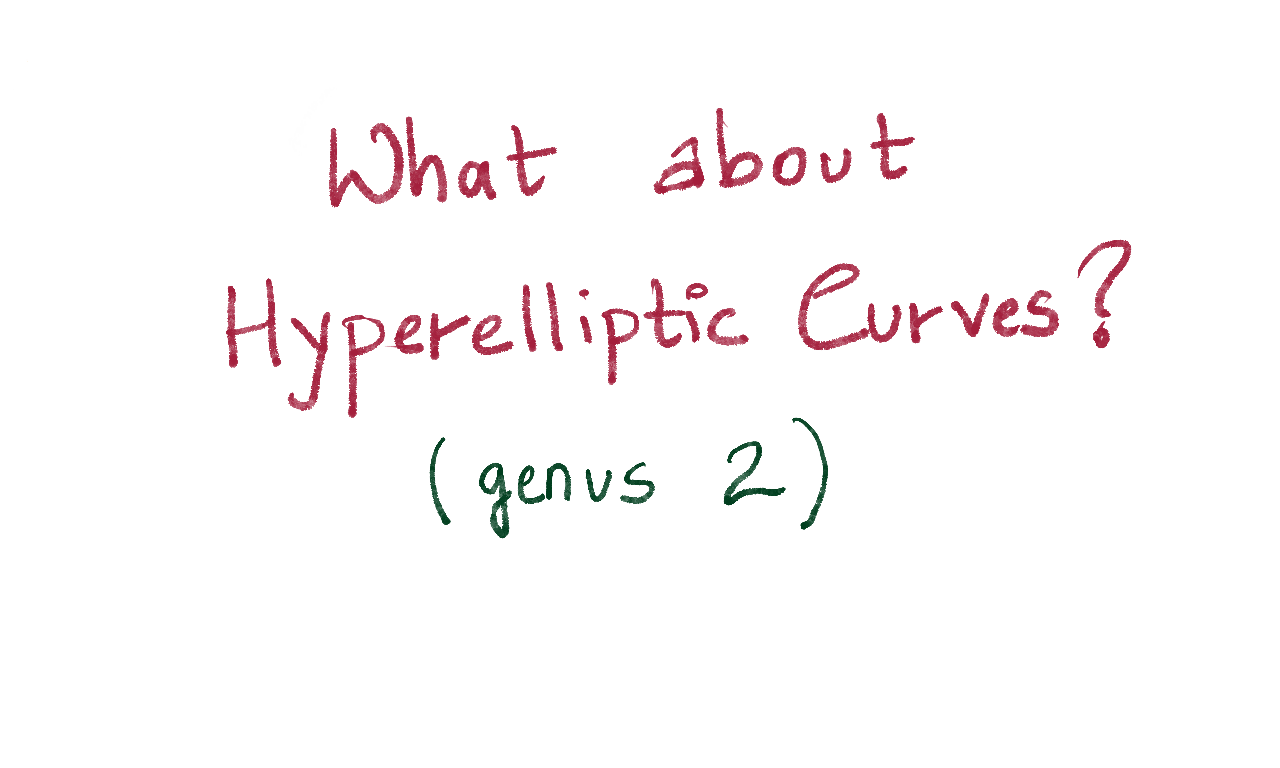 What about
Hyperelliptic Curves?
(genus 2)